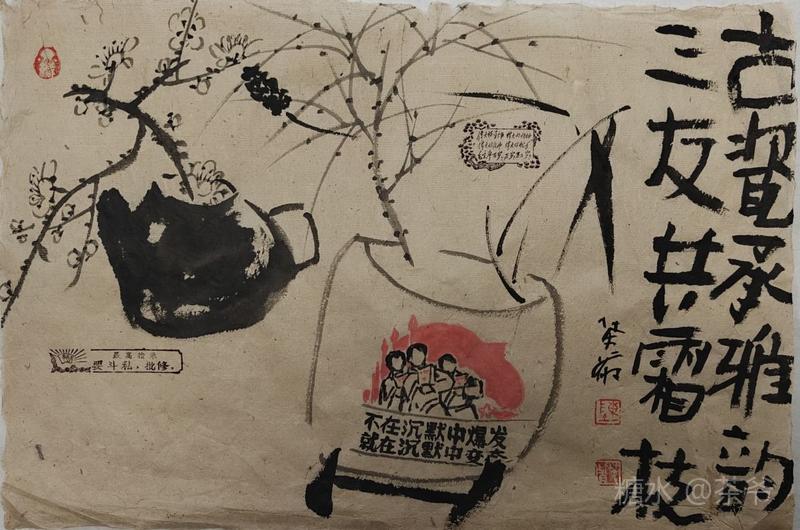 古承雅韵
三友共霜枝
不在沉默中爆发
就在沉默中变态
最高指示
要斗私，批修。
糖水 @茶爷